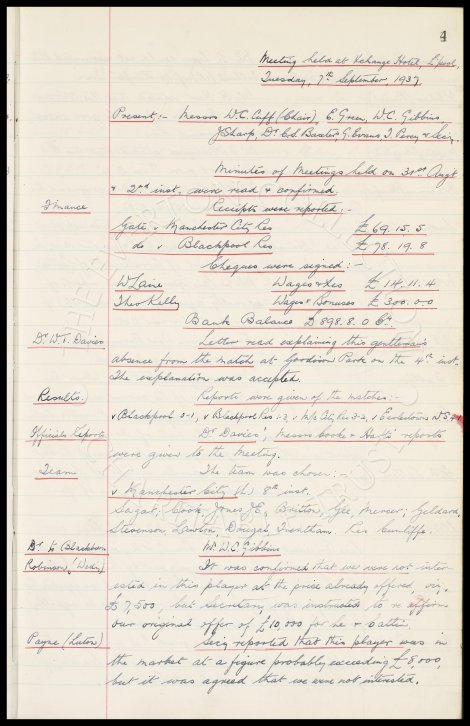 4
Meeting held at Xchange Hotel, L'pool,
Tuesday, 7th September, 1937
Present:- Messrs W.C. Cuff (Chair), E. Green, W.C. Gibbins
J Sharp, Dr C.S. Baxter G. Evans T. Percy & Secy.
Minutes of Meetings held on 31st Augt
& 2nd inst. were read & confirmed.
Finance
Receipts were reported:-
Gate v Manchester City Res £69.15.5
do v Blackpool Res £78.19.8
Cheques were signed:-
W Laine Wages & Fees £114.11.4
Theo Kelly Wages & Bonuses £300.0.0
Bank Balance £898.8.0
Dr. W.T. Davies
Letter read explaining this gentleman's
absence from the match at Goodison Park on the 4th inst.
The explanation was accepted.
Results.
Reports were given of the matches:-
v Blackpool 3-1, v Blackpool Res 1-3, v M/r City Res 3-2, v
Officials Reports
Dr Davies', Messrs Cooke & Haft's reports
were given to the Meeting.
Team
The team was chosen:-
v Manchester City (h) 8th inst.
Sagar, Cook, Jones JE, Britton, Gee, Mercer, Geldard,
Stevenson, Lawton, Dougal, Trentham. Res Cunliffe.
Dr. to Blackburn
Mr. W.C. Gibbins
Robinson, (Wedy)
It was confirmed that we were not inter-
ested in this player at the price already offered, viz,
£7,500, but Secretary was instructed to re affirm
our original offer of £10,000 for he &
Payne (Luton)
Secy reported that this player was in
the market at a figure probably exceeding £8,000,
but it was agreed that we were not interested.